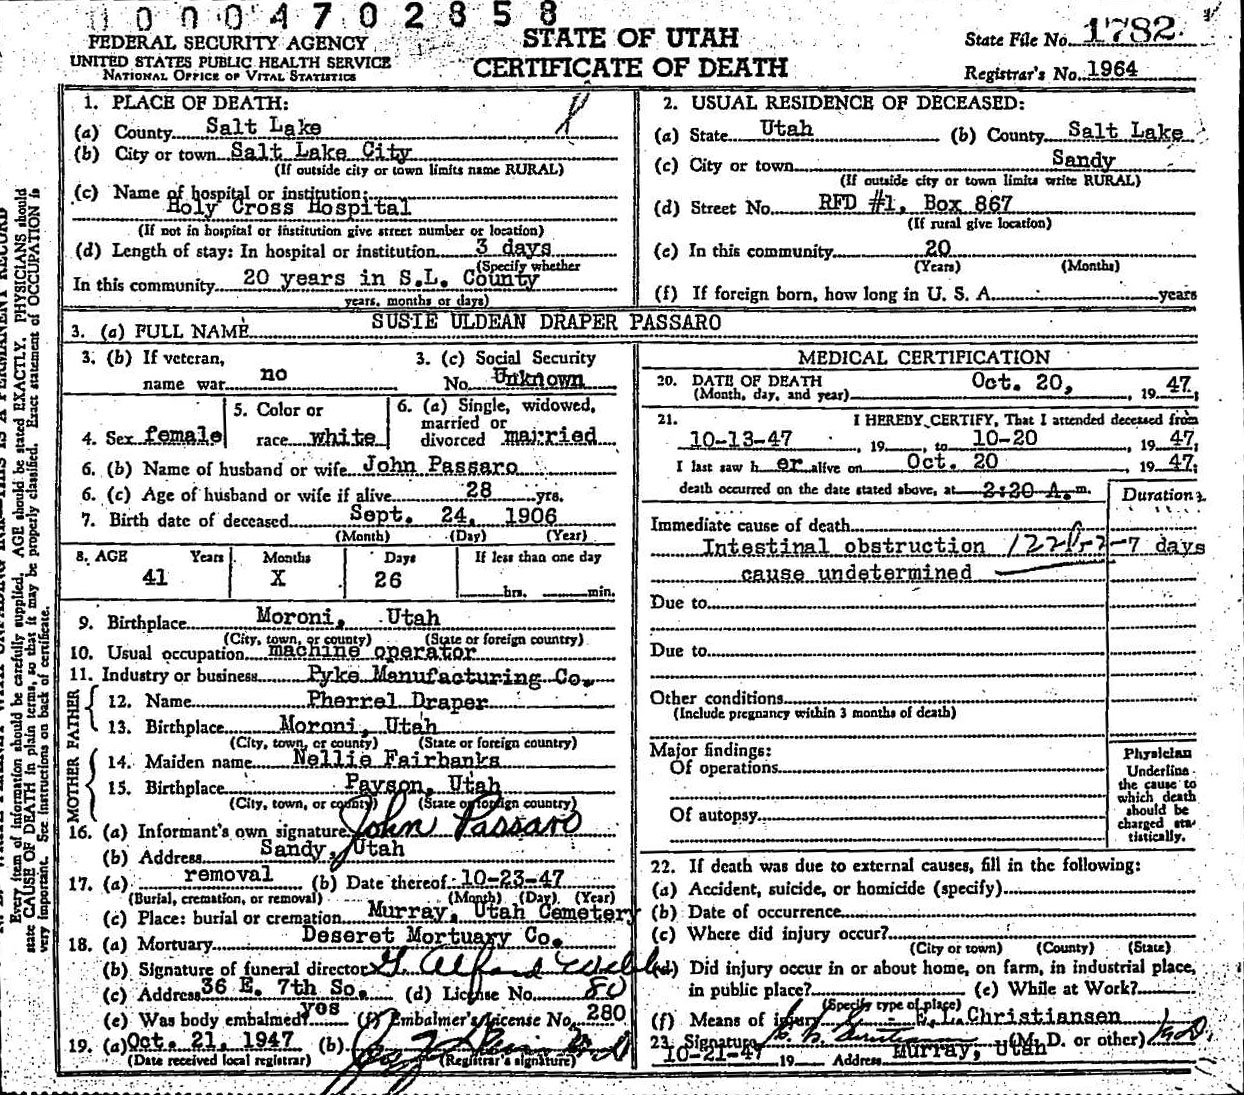 00004702858
FEDERAL SECURITY AGENCY
UNITED STATES PUBLIC HEALTH SERVICE
NATIONAL OFFICE OF VITAL STATISTICS
STATE OF UTAH
CERTIFICATE OF DEATH
State File No. 1782
Registrar's No. 1964
1. PLACE OF DEATH:
(a) County Salt Lake
(b) City or town Salt Lake City
(If outside city or town limits name RURAL)
(c) Name of hospital or institution:
Holy Cross Hospital
(If not in hospital or institution give street number or location)
(d) Length of stay: In hospital or institution 3 days
(Specify whether
In this community 20 years in S.L. County
years, months or days)
2. USUAL RESIDENCE OF DECEASED:
(a) State Utah (b) County Salt Lake
(c) City or town Sandy
(If outside city or town limits write RURAL)
(d) Street No. RFD #1, Box 867
(If rural give location)
(e) In this community 20
(Years) (Months)
(f) If foreign born, how long in U. S. A. years
3. (a) FULL NAME SUSIE ULDEAN DRAPER PASSARO
3. (b) If veteran,
name war no
3. (c) Social Security
No. Unknown
4. Sex female
5. Color or
race white
6. (a) Single, widowed,
married or
divorced married
6. (b) Name of husband or wife John Passaro
6. (c) Age of husband or wife if alive 28 yrs.
7. Birth date of deceased Sept. 24, 1906
(Month) (Day) (Year)
8. AGE Years Months Days If less than one day
41 X 26 hrs. min.
9. Birthplace Moroni, Utah
(City, town, or county) (State or foreign country)
10. Usual occupation machine operator
11. Industry or business Pyke Manufacturing Co.
FATHER
12. Name Pherrel Draper
13. Birthplace Moroni, Utah
(City, town, or county) (State or foreign country)
MOTHER
14. Maiden name Nellie Fairbanks
15. Birthplace Payson, Utah
(City, town, or county) (State or foreign country)
16. (a) Informant's own signature John Passaro
(b) Address Sandy, Utah
17. (a) removal (b) Date thereof 10-23-47
(Burial, cremation, or removal) (Month) (Day) (Year)
(c) Place: burial or cremation Murray, Utah Cemetery
18. (a) Mortuary Deseret Mortuary Co.
(b) Signature of funeral director
(c) Address 36 E. 7th So. (d) License No. 80
(e) Was body embalmed? yes (f) Embalmer's License No. 280
19. (a) Oct. 21, 1947 (b)
(Date received local registrar) (Registrar's signature)
MEDICAL CERTIFICATION
20. DATE OF DEATH Oct. 20, 1947;
(Month, day, and year)
21. I HEREBY CERTIFY, That I attended deceased from
10-13-47, 19 , to 10-20, 1947,
I last saw h er alive on Oct. 20, 1947;
death occurred on the date stated above, at 2:20 A. m.
Duration
Immediate cause of death
Intestinal obstruction 7 days
cause undetermined
Due to
Due to
Other conditions
(Include pregnancy within 3 months of death)
Major findings:
Of operations
Of autopsy
Physician
Underline
the cause to
which death
should be
charged sta-
tistically.
22. If death was due to external causes, fill in the following:
(a) Accident, suicide, or homicide (specify)
(b) Date of occurrence
(c) Where did injury occur?
(City or town) (County) (State)
(d) Did injury occur in or about home, on farm, in industrial place,
in public place? (e) While at Work?
(Specify type of place)
(f) Means of injury E.L. Christiansen
23. Signature (M. D. or other)
10-21-47 19 Address Murray, Utah
Every item of information should be carefully supplied. AGE should be stated EXACTLY. PHYSICIANS should
state CAUSE OF DEATH in plain terms, so that it may be properly classified. Exact statement of OCCUPATION is
very important. See instructions on back of certificate.